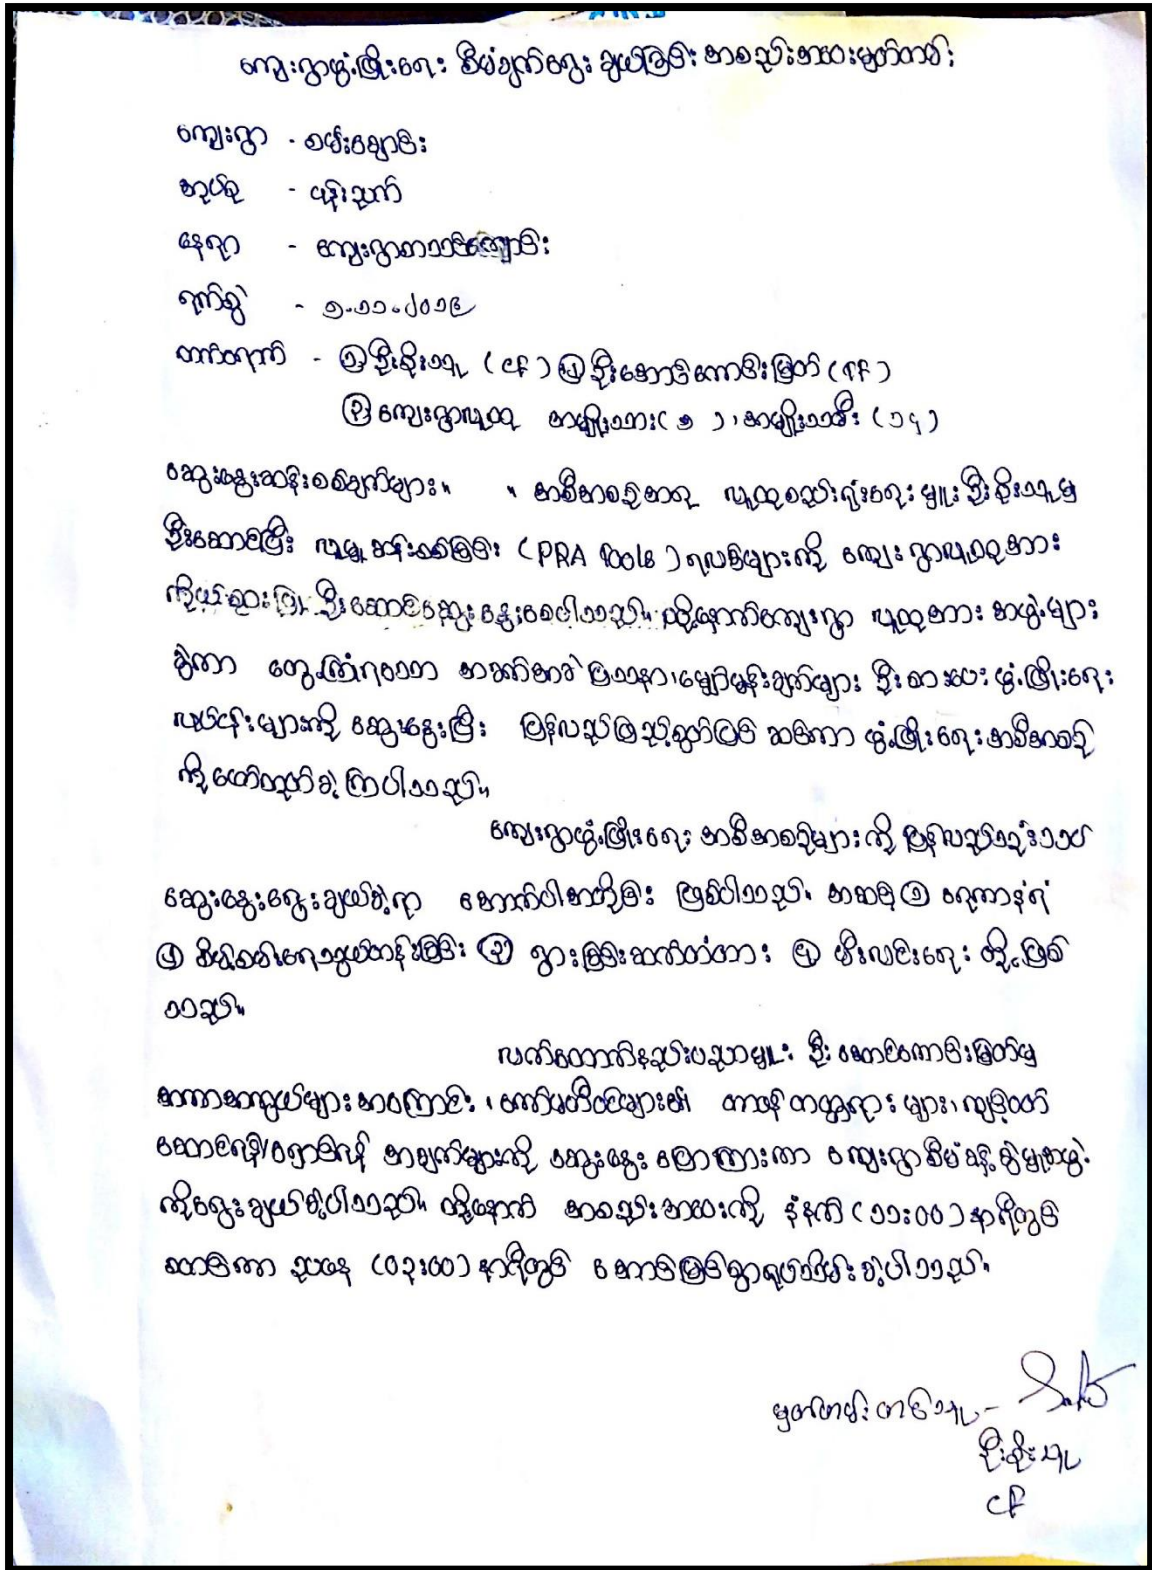 ကျေးရွာဖွံ့ဖြိုးရေး စီမံချက်ရွေး ချယ်ခြင်း အစည်းအဝေးမှတ်တမ်း
ကျေးရွာ - စမ်းချောင်း
အုပ်စု - ပန်းညက်
နေရာ - ကျေးရွာစာသင်ကျောင်း
ရက်စွဲ - ၅.၁၁.၂၀၁၉
တက်ရောက် - ① ဦးစိုးသူ (CF) ② ဦးအောင်ကောင်းမြတ် (TF)
③ ကျေးရွာလူထု အမျိုးသား(၅), အမျိုးသမီး (၁၄)
ဆွေးနွေးဆန်းစစ်ချက်များ။ ။ အစီအစဉ်အရ လူထုစည်းရုံးရေးမှူး ဦးစိုးသူမှ
ဦးဆောင်ပြီး လူမှုဆန်းစစ်ခြင်း (PRA Tools) ရလဒ်များကို ကျေးရွာလူထုအား
ကိုယ်စားပြု ဦးဆောင်ဆွေးနွေးစေပါသည်။ ထို့နောက်ကျေးရွာ လူထုအား အဖွဲ့များ
ခွဲကာ တွေ့ကြုံရသော အခက်အခဲပြဿနာ၊မျှော်မှန်းချက်များ ဦးစားပေးဖွံ့ဖြိုးရေး
လုပ်ငန်းများကို ဆွေးနွေးပြီး ပြန်လည်ဖြည့်စွက်ပြင် ဆင်ကာ ဖွံ့ဖြိုးရေးအစီအစဉ်
ကို ဖော်ထုတ်ခဲ့ကြပါသည်။
ကျေးရွာဖွံ့ဖြိုးရေး အစီအစဉ်များကို ပြန်လည်သုံးသပ်
ဆွေးနွေးရွေးချယ်ခဲ့ရာ အောက်ပါအတိုင်း ဖြစ်ပါသည်။ အဆင့် ① ရေကာနံရံ
② စိမ့်စမ်းရေသွယ်တန်းခြင်း ③ ရွားခြင်းဆက်တံတား ④ မီးလင်းရေး တို့ဖြစ်
သည်။
လက်ထောက်နည်းပညာမှူး ဦးအောင်ကောင်းမြတ်မှ
အကာအကွယ်များအကြောင်း ၊ကော်မတီဝင်များ၏ တာဝန်ဝတ္တရားများ၊လျှို့ဝှက်
ဆောင်ရန်/ရှောင်ရန် အချက်များကို ဆွေးနွေး ပြောကြားကာ ကျေးရွာစီမံခန့်ခွဲမှုအဖွဲ့
ကိုရွေးချယ်ခဲ့ပါသည်။ ထို့နောက် အစည်းအဝေးကို နံနက် (၁၁:၀၀) နာရီတွင်
စတင်ကာ ညနေ (၀၃:၀၀) နာရီတွင် အောင်မြင်စွာရုပ်သိမ်းခဲ့ပါသည်။
မှတ်တမ်းတင်သူ -
ဦးစိုးသူ
CF